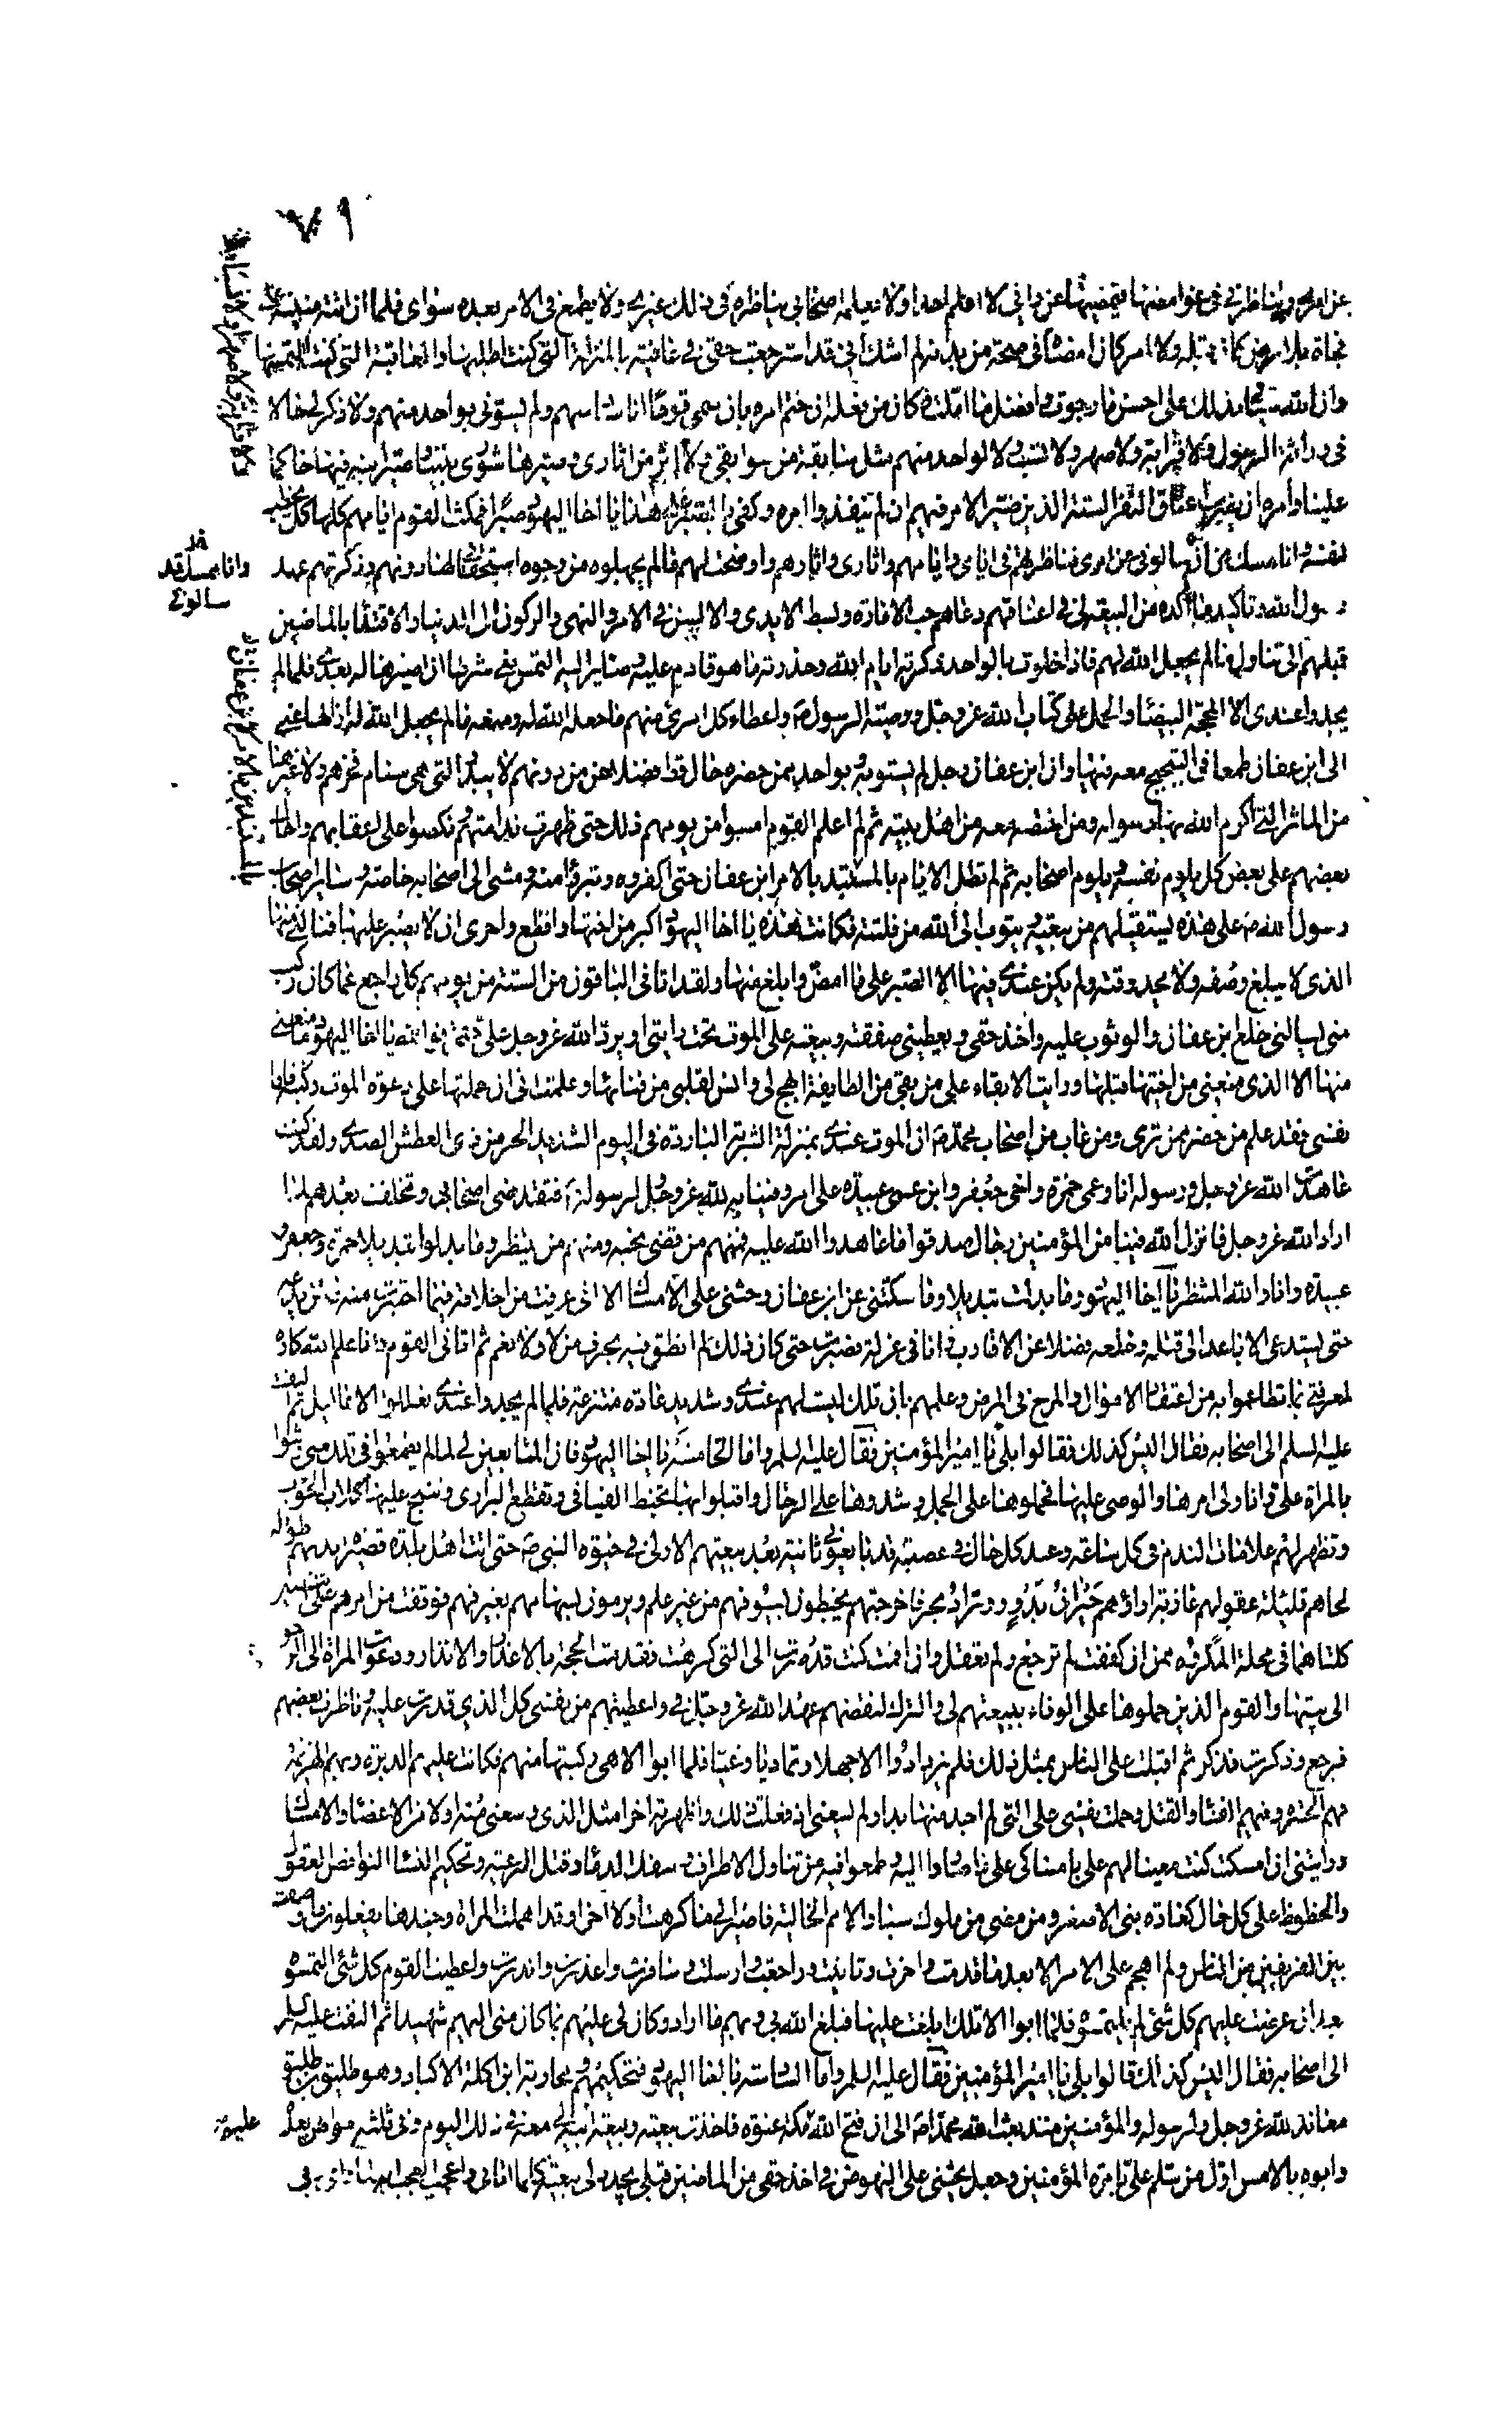 ٧١
عن امري ويناظرني في غوامضها فيمضيها عن رايي لا اعلم احدا ولا يعلمه اصحابي يناظره في ذلك غيري ولا يطمع في الامر بعده سواي فلما ان اتته منيته على
فجاة بلا مرض كان قبله ولا امر كان امضاه في صحة من بدنه لم اشك اني قد استرجعت حقي في عافية بالمنزلة التي كنت اطلبها والعاقبة التي كنت التمسها
وان الله سياتي بذلك على احسن ما رجوت وافضل ما املت فكان من فعله ان ختم امره بان سمى قوما انا سادسهم ولم يستوني بواحد منهم ولا ذكر لي حالا
في وراثة الرسول ولا قرابة ولا صهر ولا نسب ولا لواحد منهم مثل سابقة من سوابقي ولا اثر من اثاري وصيرها شورى بيننا وصير ابنه فيها حاكما
علينا وامره ان يضرب اعناق النفر الستة الذين صير الامر فيهم ان لم ينفذوا امره وكفى بالصبر على هذا يا اخا اليهود صبرا فمكث القوم ايامهم كلها كل يخطب
لنفسه وانا ممسك عن ان سالوني عن امري فناظرتهم في ايامي وايامهم واثاري واثارهم واوضحت لهم ما لم يجهلوه من وجوه استحقاقي لها دونهم وذكرتهم عهد
رسول الله وتاكيد ما اكده من البيعة لي في اعناقهم دعاهم حب الامارة وبسط الايدي والالسن في الامر والنهي والركون الى الدنيا والاقتداء بالماضين
قبلهم الى تناول ما لم يجعل الله لهم فاذا خلوت بالواحد ذكرته ايام الله وحذرته ما هو قادم عليه وصاير اليه التمس مني شرطا ان اصيرها له بعدي فلما لم
يجدوا عندي الا المحجة البيضاء والحمل على كتاب الله عز وجل ووصية الرسول ص واعطاء كل امرئ منهم ما جعله الله له ومنعه ما لم يجعل الله له ازالها عني
الى ابن عفان طمعا في التبحيح معه فيها وان ابن عفان رجل لم يستو به بواحد ممن حضره حال قط فضلا عمن دونهم لا ببدر التي هي سنام فخرهم ولا غيرها
من الماثر التي اكرم الله بها رسوله ومن اختصه معه من اهل بيته ثم لم اعلم القوم امسوا من يومهم ذلك حتى ظهرت ندامتهم ونكصوا على اعقابهم واحال
بعضهم على بعض كل يلوم نفسه ويلوم اصحابه ثم لم تطل الايام بالمستبد بالامر ابن عفان حتى اكفروه وتبرؤا منه ومشى الى اصحابه خاصة وساير اصحاب
رسول الله ص على هذه يستقيلهم من بيعته ويتوب الى الله من فلتته فكانت هذه يا اخا اليهود اكبر من اختها وافظع واحرى ان لا يصبر عليها فنالني منها
الذي لا يبلغ وصفه ولا يحد وقته ولم يكن عندي فيها الا الصبر على ما امض وابلغ منها ولقد اتاني الباقون من الستة من يومهم كل راجع عما كان ركب
مني يسالني خلع ابن عفان والوثوب عليه واخذ حقي ويعطيني صفقته وبيعته على الموت تحت رايتي او يرد الله عز وجل علي حقي فوالله يا اخا اليهود ما منعني
منها الا الذي منعني من اختيها قبلها ورايت الابقاء على من بقي من الطايفة ابهج لي وانس لقلبي من فنائها وعلمت اني ان حملتها على دعوة الموت ركبته فاما
نفسي فقد علم من حضر ممن ترى ومن غاب من اصحاب محمد ص ان الموت عندي بمنزلة الشربة الباردة في اليوم الشديد الحر من ذي العطش الصدي ولقد كنت
عاهدت الله عز وجل ورسوله انا وعمي حمزة واخي جعفر وابن عمي عبيدة على امر وفينا به لله عز وجل ولرسوله ص فتقدمني اصحابي وتخلفت بعدهم لما
اراد الله عز وجل فانزل الله فينا من المؤمنين رجال صدقوا ما عاهدوا الله عليه فمنهم من قضى نحبه ومنهم من ينتظر وما بدلوا تبديلا حمزة وجعفر و
عبيدة وانا والله المنتظر يا اخا اليهود وما بدلت تبديلا وما سكتني عن ابن عفان وحثني على الامساك الا اني عرفت من اخلاقه فيما اختبرت منه بما لن يدعه
حتى يستدعي الاباعد الى قتله وخلعه فضلا عن الاقارب وانا في عزلة فصبرت حتى كان ذلك لم انطق فيه بحرف من لا ولا نعم ثم اتاني القوم وانا علم الله كاره
لمعرفتي بما تطاعموا به من اعتقال الاموال والمرح في الارض وعلمهم بان تلك ليست لهم عندي وشديد عادة منتزعة فلما لم يجدوا عندي تعللوا الاعاليل ثم التفت
عليه السلم الى اصحابه فقال اليس كذلك فقالوا بلى يا امير المؤمنين فقال عليه السلم واما الخامسة يا اخا اليهود فان المتابعين لي لما لم يطمعوا في تلك مني وثبوا
بالمراة علي وانا ولي امرها والوصي عليها فحملوها على الجمل وشدوها على الرحال واقبلوا بها تخبط الفيافي وتقطع البراري وتنبح عليها كلاب الحوأب
وتظهر لهم علامات الندم في كل ساعة وعند كل حال في عصبة قد بايعوني ثانية بعد بيعتهم الاولى في حيوة النبي ص حتى اتت اهل بلدة قصيرة ايديهم طويلة
لحاهم قليلة عقولهم عازبة اراؤهم جيران بدو ووراد بحر فاخرجتهم يخبطون بسيوفهم من غير علم ويرمون بسهامهم بغير فهم فوقفت من امرهم على اثنتين
كلتاهما في محلة المكروه ممن ان كففت لم ترجع ولم تعقل وان اقمت كنت قد صرت الى التي كرهت فقدمت الحجة بالاعذار والانذار ودعوت المراة الى الرجوع
الى بيتها والقوم الذين حملوها على الوفاء ببيعتهم لي والترك لنقضهم عهد الله عز وجل في واعطيتهم من نفسي كل الذي قدرت عليه وناظرت بعضهم
فرجع وذكرت فذكر ثم اقبلت على الناس بمثل ذلك فلم يزدادوا الا جهلا وتماديا وغيا فلما ابوا الا هي ركبتها منهم فكانت عليهم الدبرة وبهم الهزيمة
ولهم الحسرة وفيهم الفناء والقتل وحملت نفسي على التي لم اجد منها بدا ولم يسعني اذ فعلت ذلك واظهرته اخرا مثل الذي وسعني منه اولا من الاغضاء والامساك
ورايتني ان امسكت كنت معينا لهم علي بامساكي على ما صاروا اليه وطمعوا فيه من تناول الاطراف وسفك الدماء وقتل الرعية وتحكيم النساء النواقص العقول
والحظوظ على كل حال كعادة بني الاصفر ومن مضى من ملوك سبا والامم الخالية فاصير الى ما كرهت اولا اخرا وقد اهملت المراة وجندها يفعلون ما وصفت
بين الفريقين من الناس ولم اهجم على الامر الا بعد ما قدمت واخرت وتانيت وراجعت وارسلت وسافرت واعذرت وانذرت واعطيت القوم كل شئ التمسوه
بعد ان عرضت عليهم كل شئ لم يلتمسوه فلما ابوا الا تلك اقدمت عليها فبلغ الله بي وبهم ما اراد وكان لي عليهم بما كان مني اليهم شهيدا ثم التفت عليه السلم
الى اصحابه فقال اليس كذلك قالوا بلى يا امير المؤمنين فقال عليه السلم واما السادسة يا اخا اليهود فتحكيمهم ومحاربة ابن اكلة الاكباد وهو طليق بن طليق
معاند لله عز وجل ولرسوله وللمؤمنين منذ بعث الله محمدا ص الى ان فتح الله مكة عنوة فاخذت بيعته وبيعة ابيه لي معه في ذلك اليوم وفي ثلثة مواطن بعده
وابوه بالامس اول من سلم علي بامرة المؤمنين وجعل يحثني على النهوض في اخذ حقي من الماضين قبلي يجدد لي بيعته كلما اتاني واعجب العجب